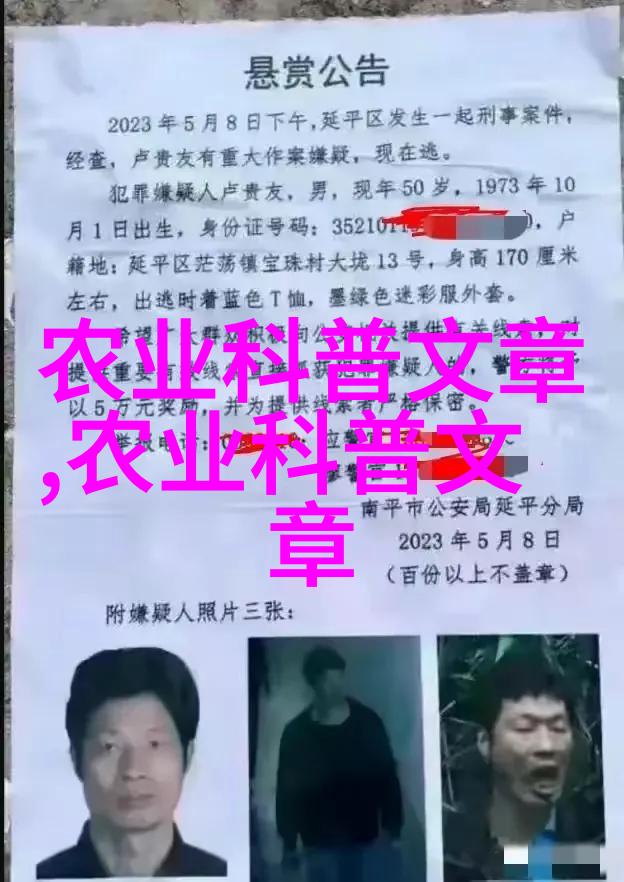 悬赏公告
2023年5月8日下午,延平区发生一起刑事案件,
经查，卢贵友有重大作案嫌疑，现在逃。
犯罪嫌疑人卢贵友，男，现年50岁，1973年10
月1日出生，身份证号码：3521011，户
籍地：延平区茫荡镇宝珠村大垅13号，身高170厘米
左右，出逃时着蓝色T恤，墨绿色迷彩服外套。
农业科普文章
,农业科普文
章
以5万元奖励，并为提供线索者严格保密。
南平市公安局延平分局
2023年5月8日
（百份以上不盖章）
附嫌疑人照片三张：